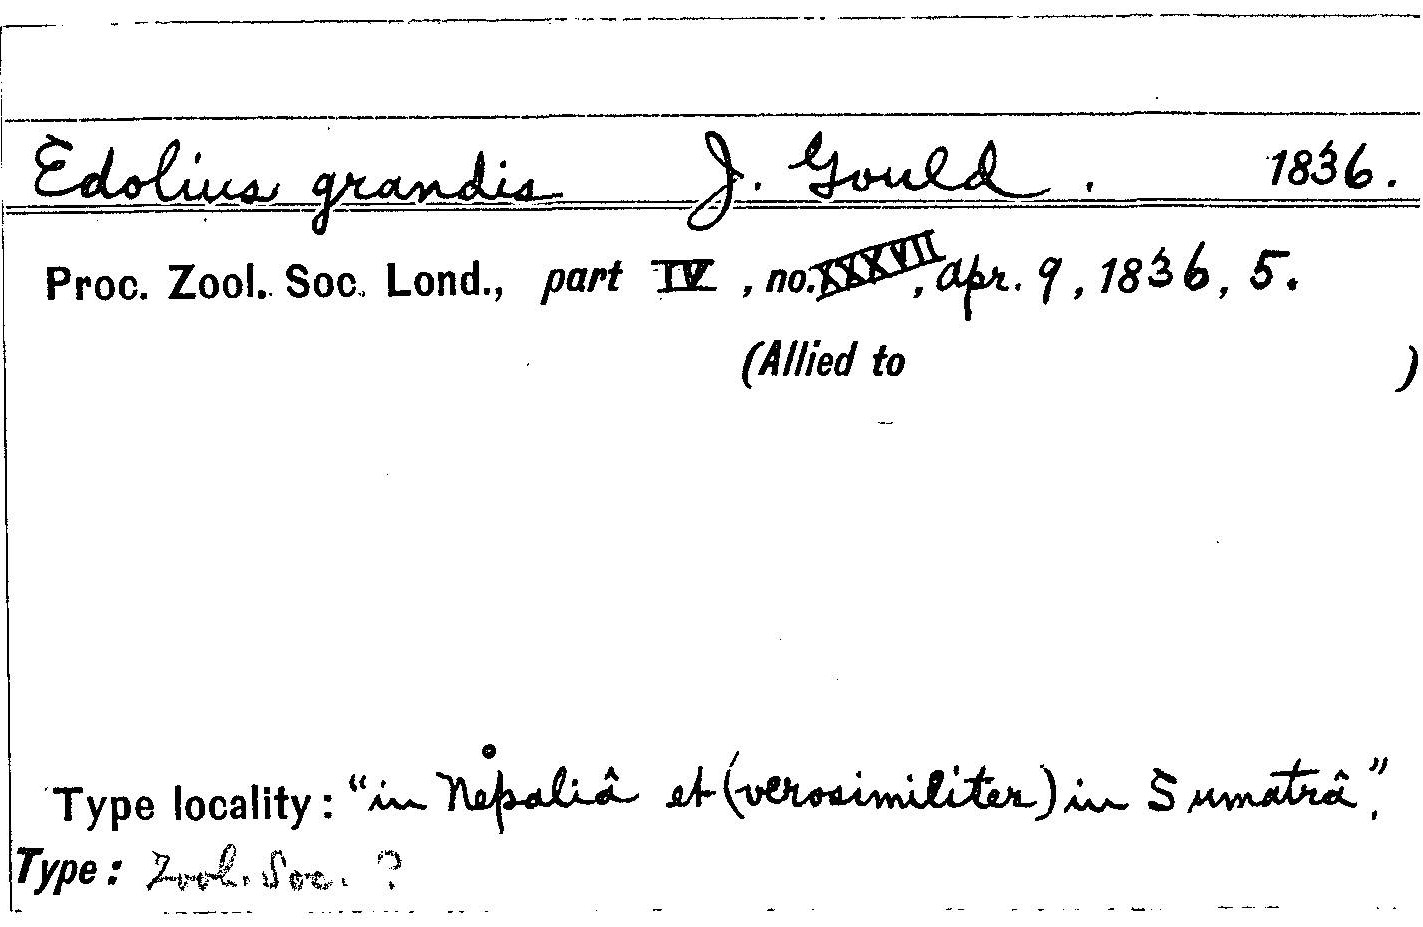 Edolius grandis J. Gould. 1836.
Proc. Zool. Soc. Lond., part IV, no. XXXVII, Apr. 9, 1836, 5.
(Allied to )
Type locality: "in Nepaliâ et (verosimiliter) in Sumatrâ".
Type: Zool. Soc. ?